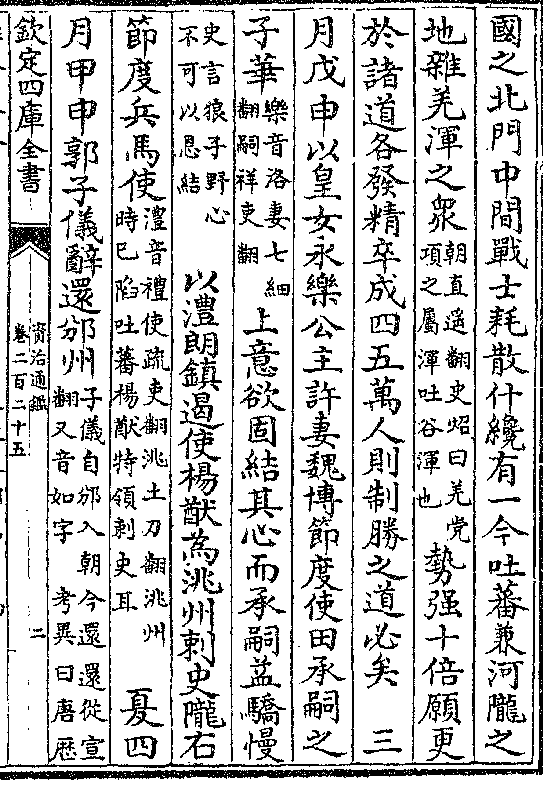 國之北門中間戰士耗散什纔有一今吐蕃兼河隴之
地雜羌渾之衆朝直遥翻史炤曰羌党
項之屬渾吐谷渾也勢强十倍願更
於諸道各發精卒成四五萬人則制勝之道必矣 三
月戊申以皇女永樂公主許妻魏博節度使田承嗣之
子華樂音洛妻七細
翻嗣祥吏翻上意欲固結其心而承嗣益驕慢
史言狼子野心
不可以恩結 以澧朗鎮遏使楊猷為洮州刺史隴右
節度兵馬使澧音禮使疏吏翻洮土刀翻洮州
時巳陷吐蕃楊猷特領刺史耳 夏四
月甲申郭子儀辭還邠州子儀自邠入朝今還還從宣
翻又音如字 考異曰唐歴
欽定四庫全書
資治通鑑
卷二百二十五
二